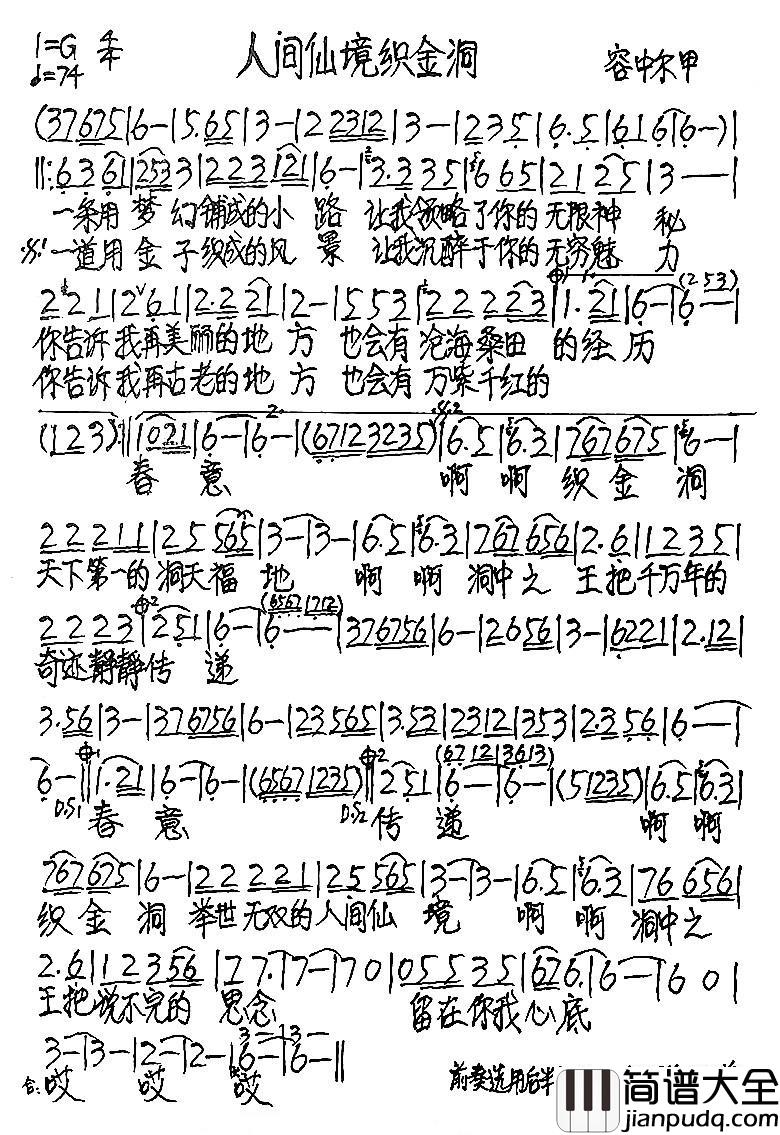 1=G 4/4 人间仙境织金洞 容中尔甲
♩=74
(37675|6-|5.65|3-|22312|3-|235|6.5|616|6-)|
||:6361|2533|223121|6-|3.335|665|2125|3--|
一条用梦幻铺成的小路 让我领略了你的无限神秘
一道用金子织成的风景 让我沉醉于你的无穷魅力
221|2ˇ61|2.221|2-|553|22223|1.21|6-|6--|
(253)
你告诉我再美丽的地方 也会有沧海桑田的经历
你告诉我再古老的地方 也会有万紫千红的
(123):||1021|6-|6-|(67123235)|6.5|6.3|767675|6-|
春意 啊啊织金洞
22211|25565|3-|3-|6.5|6.3|767656|2.6|1235|
天下第一的洞天福地 啊啊洞中之王把千万年的
(6567 1712)
2223|251|6-|6--|376756|6-|2656|3-|6221|2.12|
奇迹静静传递
3.56|3-|376756|6-|23565|3.53|2312|353|2.356|6--|
(67 12|3613)
6-||1.21|6-|6-|(6567 1235)||251|6-|6-|(51235)|6.5|6.3|
D.S1 春意 D.S2 传递 啊啊
767675|6-|222221|25565|3-|3-|6.5|6.3|76656|
织金洞 举世无双的人间仙境 啊啊洞中之
2.6|12356|77.|7-|70|05535|676.|6-|60|
王把说不完的思念 留在你我心底
3- 3-
3-|3-|2-|2-|6-|6-||
合:哎 哎 哎 前奏选用后半
简谱大全
jianpudq.com